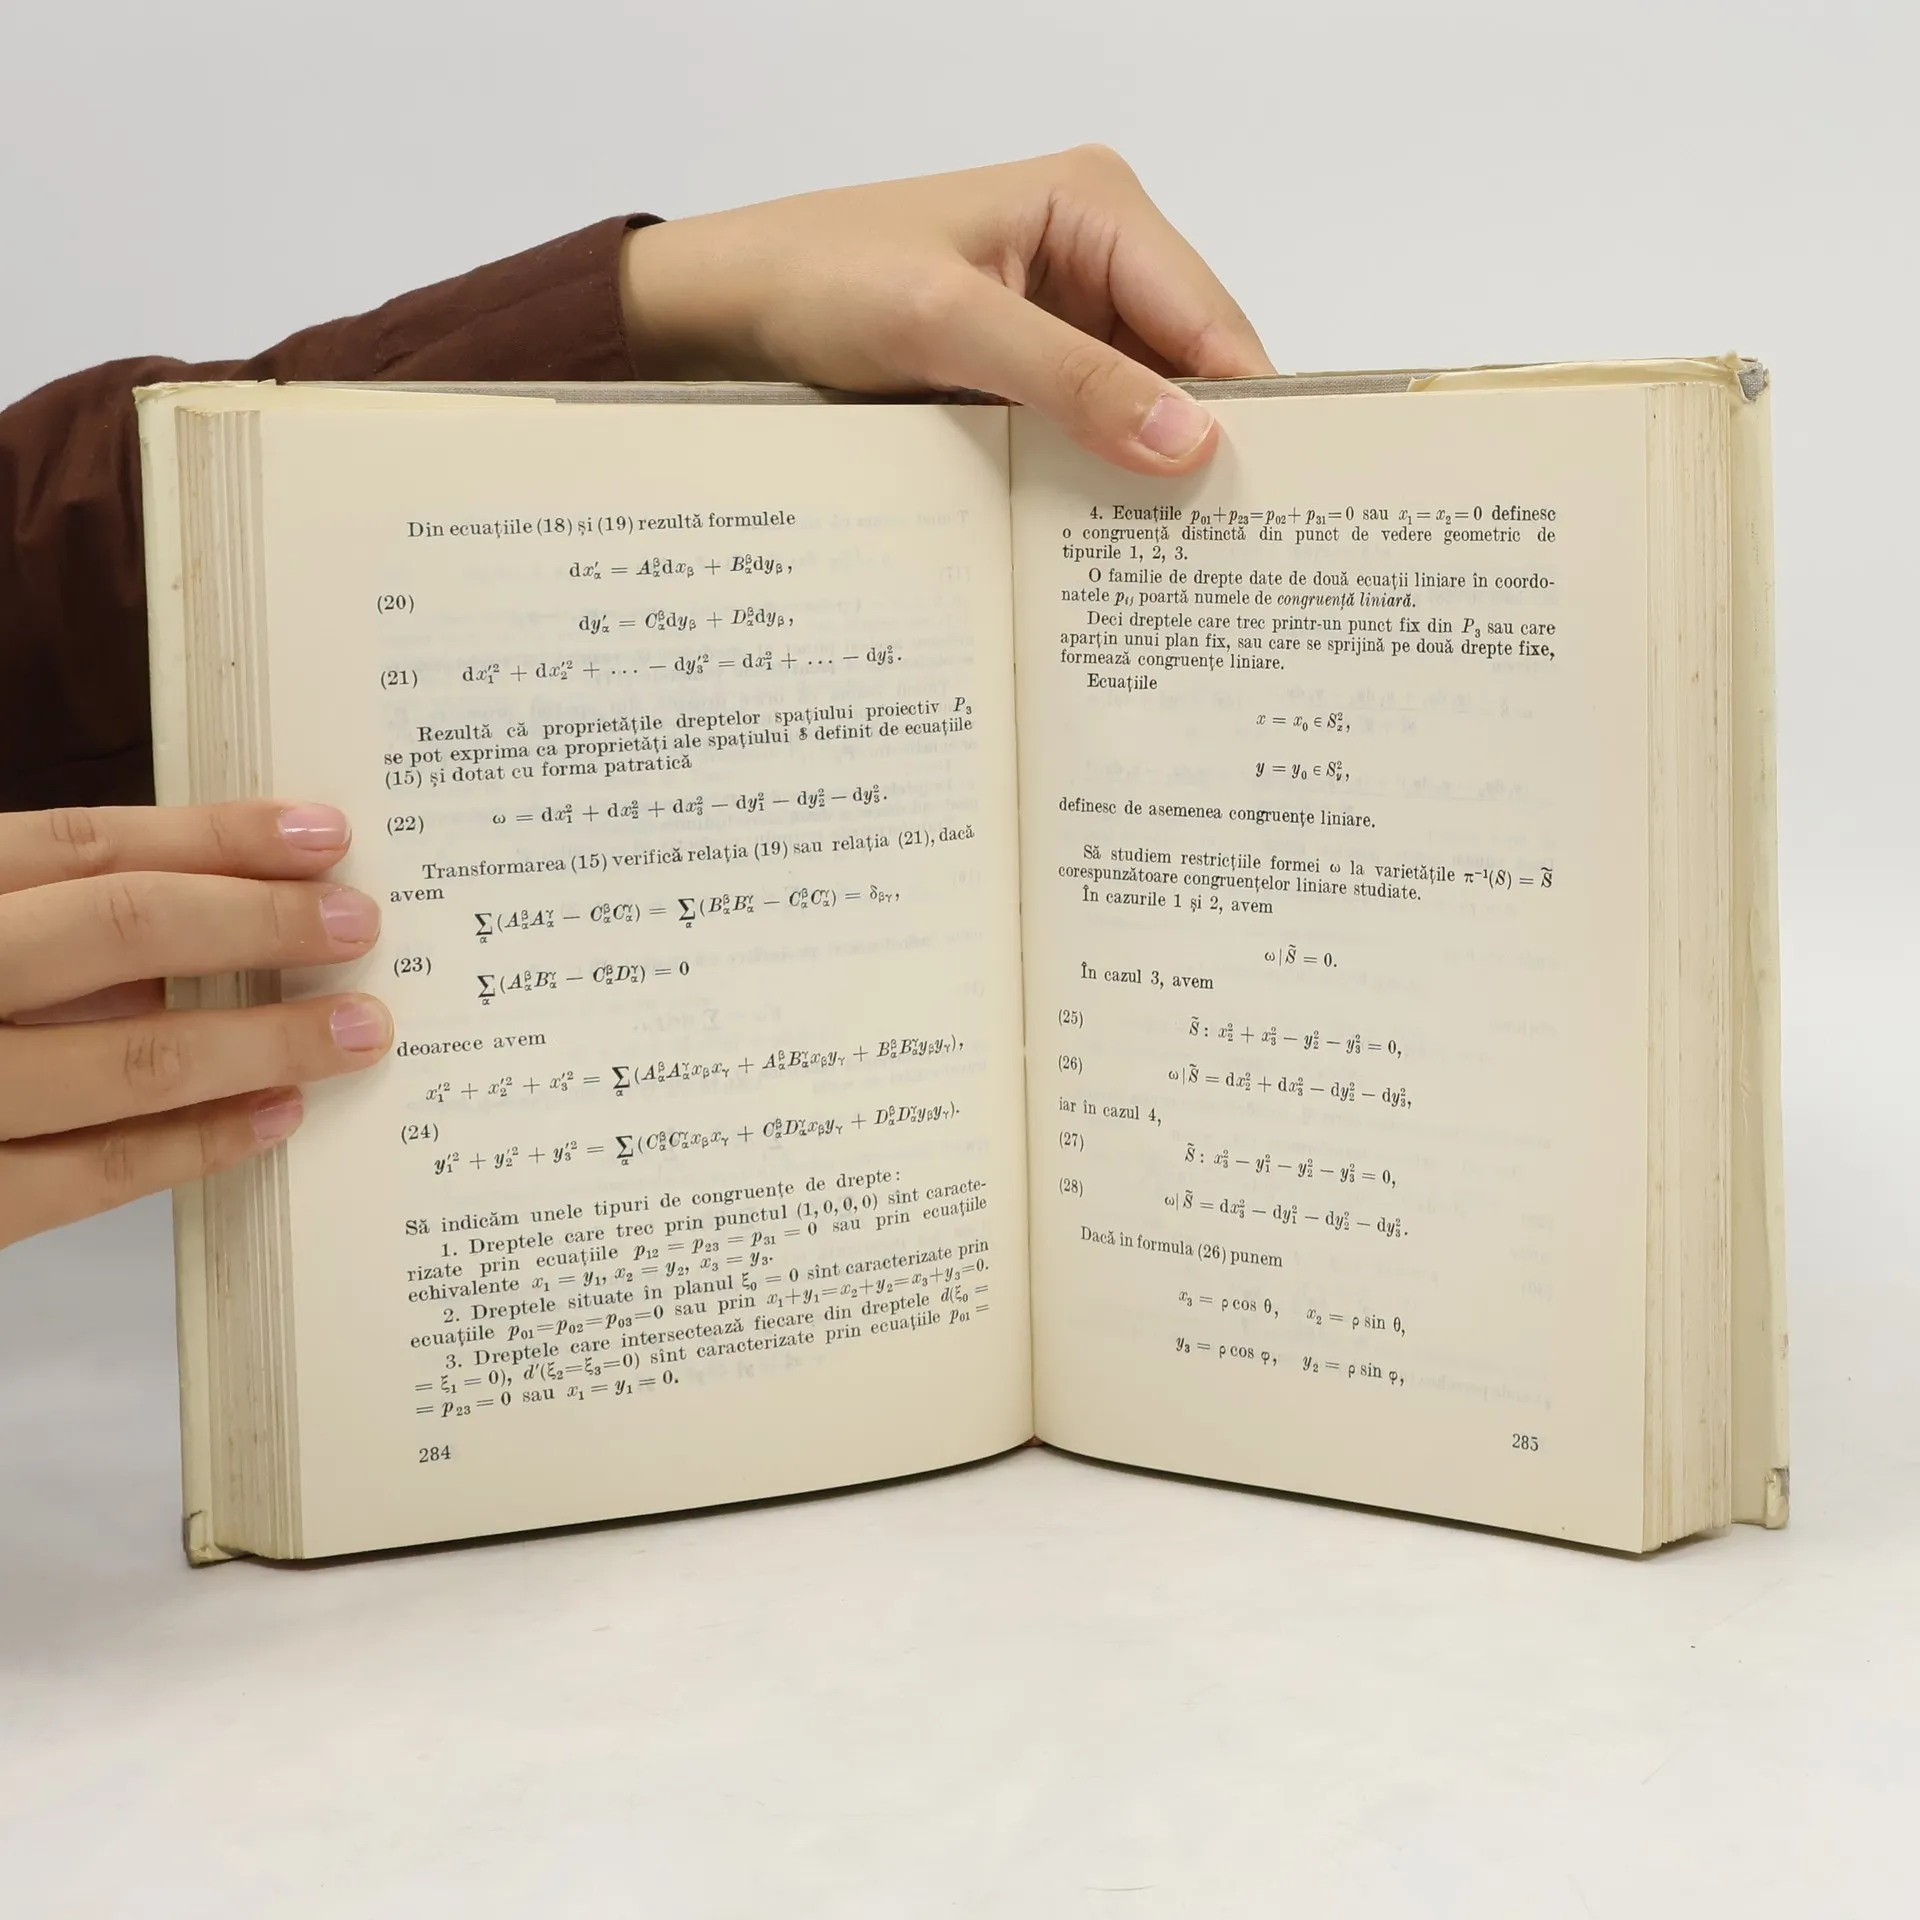 Din ecuațiile (18) și (19) rezultă formulele
dx′_α = A_α^β dx_β + B_α^β dy_β,
(20)
dy′_α = C_α^β dy_β + D_α^β dy_β,
(21) dx′₁² + dx′₂² + ... − dy′₃² = dx₁² + ... − dy₃².
Rezultă că proprietățile dreptelor spațiului proiectiv P₃
se pot exprima ca proprietăți ale spațiului $ definit de ecuațiile
(15) și dotat cu forma patratică
(22) ω = dx₁² + dx₂² + dx₃² − dy₁² − dy₂² − dy₃².
Transformarea (15) verifică relația (19) sau relația (21), dacă
avem
∑_α (A_α^β A_α^γ − C_α^β C_α^γ) = ∑_α (B_α^β B_α^γ − C_α^β C_α^γ) = δ_βγ,
(23)
∑_α (A_α^β B_α^γ − C_α^β D_α^γ) = 0
deoarece avem
x′₁² + x′₂² + x′₃² = ∑_α (A_α^β A_α^γ x_β x_γ + A_α^β B_α^γ x_β y_γ + B_α^β B_α^γ y_β y_γ),
(24)
y′₁² + y′₂² + y′₃² = ∑_α (C_α^β C_α^γ x_β x_γ + C_α^β D_α^γ x_β y_γ + D_α^β D_α^γ y_β y_γ).
Să indicăm unele tipuri de congruențe de drepte :
1. Dreptele care trec prin punctul (1, 0, 0, 0) sînt caracte-
rizate prin ecuațiile p₁₂ = p₂₃ = p₃₁ = 0 sau prin ecuațiile
echivalente x₁ = y₁, x₂ = y₂, x₃ = y₃.
2. Dreptele situate în planul ξ₀ = 0 sînt caracterizate prin
ecuațiile p₀₁=p₀₂=p₀₃=0 sau prin x₁+y₁=x₂+y₂=x₃+y₃=0.
3. Dreptele care intersectează fiecare din dreptele d(ξ₀ =
= ξ₁ = 0), d′(ξ₂=ξ₃=0) sînt caracterizate prin ecuațiile p₀₁ =
= p₂₃ = 0 sau x₁ = y₁ = 0.
284
4. Ecuațiile p₀₁+p₂₃=p₀₂+p₃₁=0 sau x₁=x₂=0 definesc
o congruență distinctă din punct de vedere geometric de
tipurile 1, 2, 3.
O familie de drepte date de două ecuații liniare în coordo-
natele p_ij poartă numele de congruență liniară.
Deci dreptele care trec printr-un punct fix din P₃ sau care
aparțin unui plan fix, sau care se sprijină pe două drepte fixe,
formează congruențe liniare.
Ecuațiile
x = x₀ ∈ S_x²,
y = y₀ ∈ S_y²,
definesc de asemenea congruențe liniare.
Să studiem restricțiile formei ω la varietățile π⁻¹(S) = S̃
corespunzătoare congruențelor liniare studiate.
În cazurile 1 și 2, avem
ω|S̃ = 0.
În cazul 3, avem
(25) S̃ : x₂² + x₃² − y₂² − y₃² = 0,
(26) ω|S̃ = dx₂² + dx₃² − dy₂² − dy₃²,
iar în cazul 4,
(27) S̃ : x₃² − y₁² − y₂² − y₃² = 0,
(28) ω|S̃ = dx₃² − dy₁² − dy₂² − dy₃².
Dacă în formula (26) punem
x₃ = ρ cos θ, x₂ = ρ sin θ,
y₃ = ρ cos φ, y₂ = ρ sin φ,
285